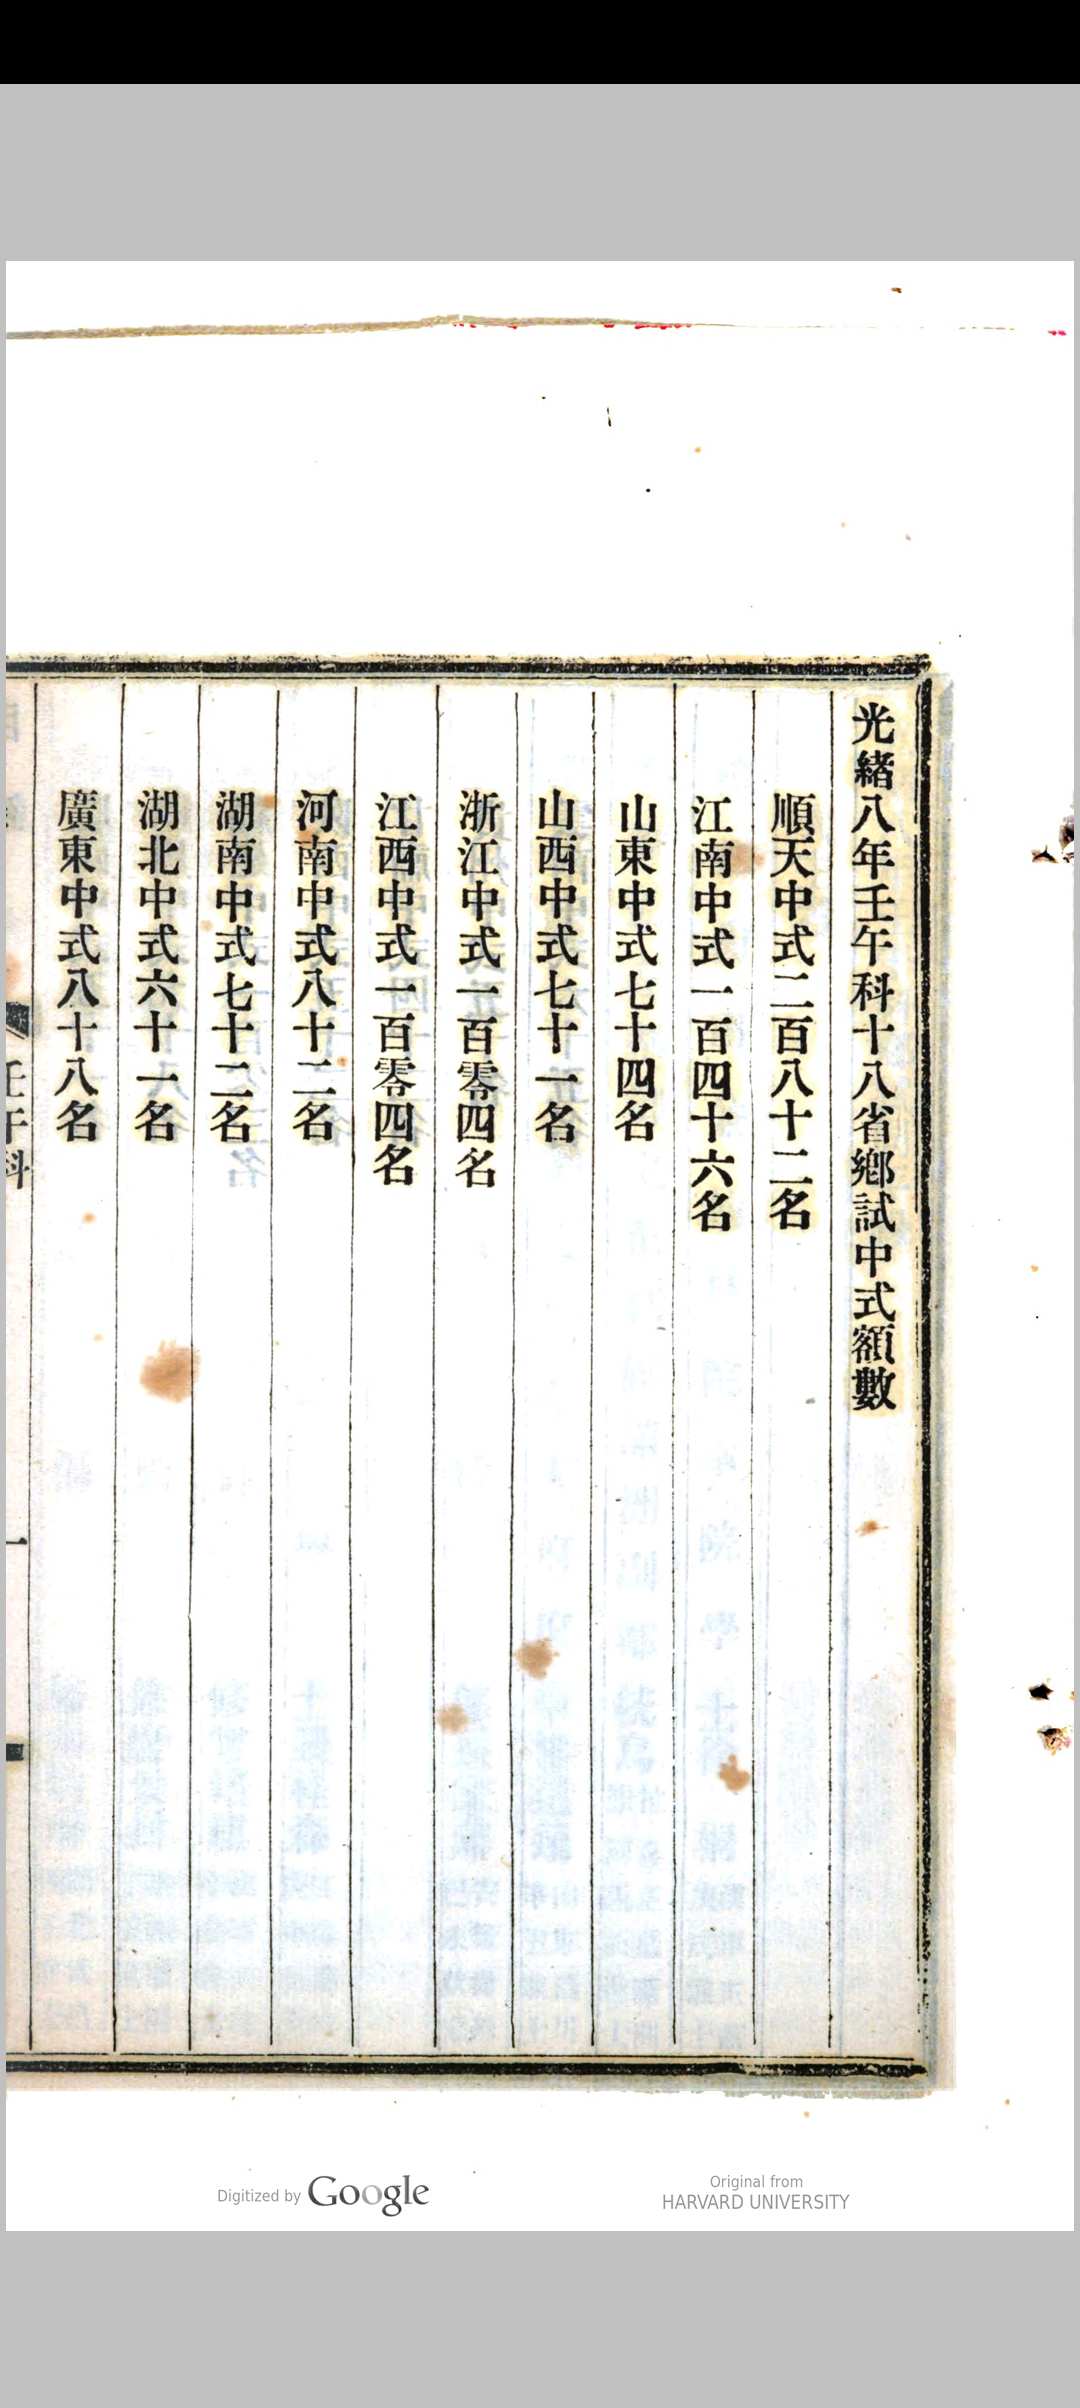 光緒八年壬午科十八省鄉試中式額數
順天中式二百八十二名
江南中式一百四十六名
山東中式七十四名
山西中式七十一名
浙江中式一百零四名
江西中式一百零四名
河南中式八十二名
湖南中式七十二名
湖北中式六十一名
廣東中式八十八名
壬午科
一
Digitized by Google
Original from
HARVARD UNIVERSITY